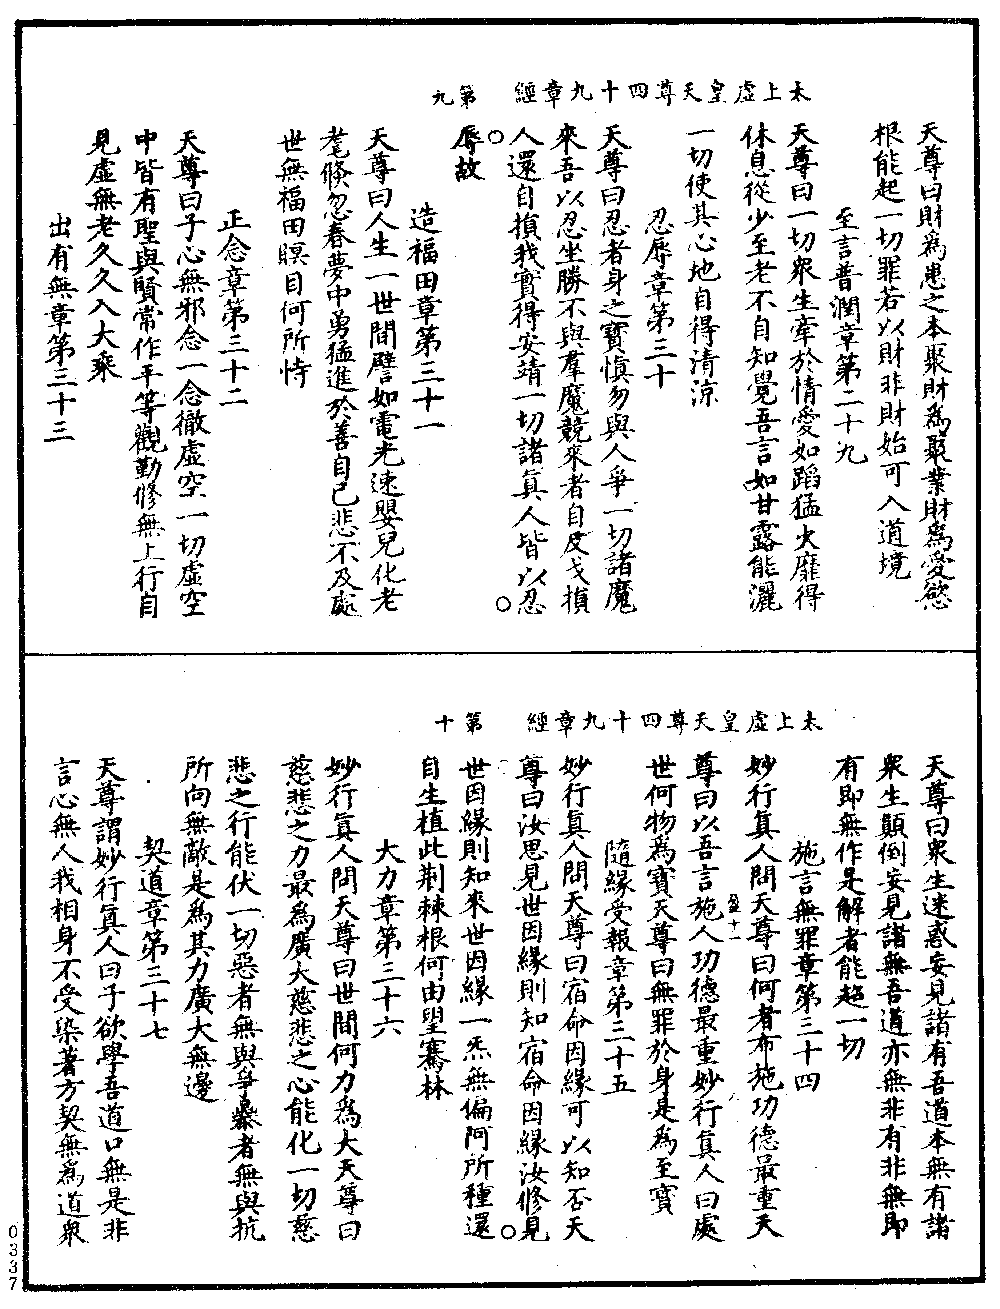 太上虛皇天尊四十九章經 第九
天尊曰財爲患之本聚財爲聚業財爲愛慾
根能起一切罪若以財非財始可入道境
至言普潤章第二十九
天尊曰一切衆生牽於情愛如蹈猛火靡得
休息從少至老不自知覺吾言如甘露能灑
一切使其心地自得清涼
忍辱章第三十
天尊曰忍者身之寶慎勿與人爭一切諸魔
來吾以忍坐勝不與羣魔競來者自反戈損
人還自損我實得安靖一切諸眞人皆以忍
辱故
造福田章第三十一
天尊曰人生一世間譬如電光速嬰兒化老
耄倏忽春夢中勇猛進於善自已悲不及處
世無福田瞑目何所恃
正念章第三十二
天尊曰子心無邪念一念徹虛空一切虛空
中皆有聖與賢常作平等觀勤修無上行自
見虛無老久久入大乘
出有無章第三十三
太上虛皇天尊四十九章經 第十
天尊曰衆生迷惑妄見諸有吾道本無有諸
衆生顛倒妄見諸無吾道亦無非有非無即
有即無作是解者能超一切
施言無罪章第三十四
妙行眞人問天尊曰何者布施功德最重天
尊曰以吾言施人功德最重妙行眞人曰處
世何物爲寶天尊曰無罪於身是爲至寶
隨緣受報章第三十五
妙行眞人問天尊曰宿命因緣可以知否天
尊曰汝思見世因緣則知宿命因緣汝修見
世因緣則知來世因緣一炁無偏阿所種還
自生植此荆棘根何由望騫林
大力章第三十六
妙行眞人問天尊曰世間何力爲大天尊曰
慈悲之力最爲廣大慈悲之心能化一切慈
悲之行能伏一切惡者無與爭暴者無與抗
所向無敵是爲其力廣大無邊
契道章第三十七
天尊謂妙行眞人曰子欲學吾道口無是非
言心無人我相身不受染著方契無爲道衆
0337